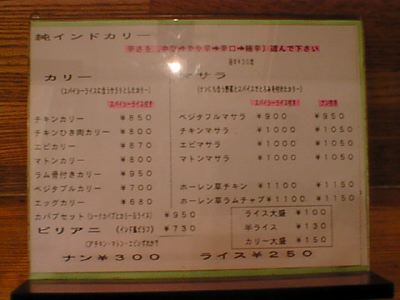 純インドカリー
辛さを(中辛→やや辛→辛口→極辛)選んで下さい
カリー
(スパイシーライスに合うサラリとしたカリー)
(スパイシーライス付き)
チキンカリー ¥850
チキンひき肉カリー ¥800
エビカリー ¥870
マトンカリー ¥800
ラム骨付きカリー ¥950
ベジタブルカリー ¥700
エッグカリー ¥680
カバブセット (シークカバブとカリー&ライス) ¥950
ビリアニ (インド風ピラフ) ¥730
マサラ
(ナンにも合う野菜とスパイスがとろみを付けたカリー)
(スパイシーライス付き) (ナン付き)
ベジタブルマサラ ¥900 ¥950
チキンマサラ ¥1000 ¥1050
エビマサラ ¥1000 ¥1050
マトンマサラ ¥1000 ¥1050
ホーレン草チキン ¥1100 ¥1150
ホーレン草ラムチャプ ¥1100 ¥1150
ライス大盛 ¥100
半ライス ¥130
カリー大盛 ¥150
ナン ¥300 ライス ¥250